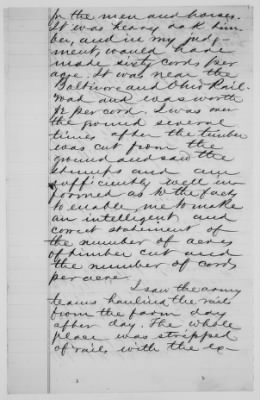 for the men and horses.
It was heavy oak tim-
ber, and in my judg-
ment, would have
made sixty cords per
acre. It was near the
Baltimore and Ohio Rail-
road and was worth
per cord. I was over
the ground several
times after the timber
was cut from the
ground and saw the
stumps and am
sufficiently well in-
formed as to the facts
to enable me to make
an intelligent and
correct statement of
the number of acres
of timber cut and
the number of cords
per acre.
I saw the army
teams hauling the rails
from the farm day
after day. The whole
place was stripped
of rails with the ex-